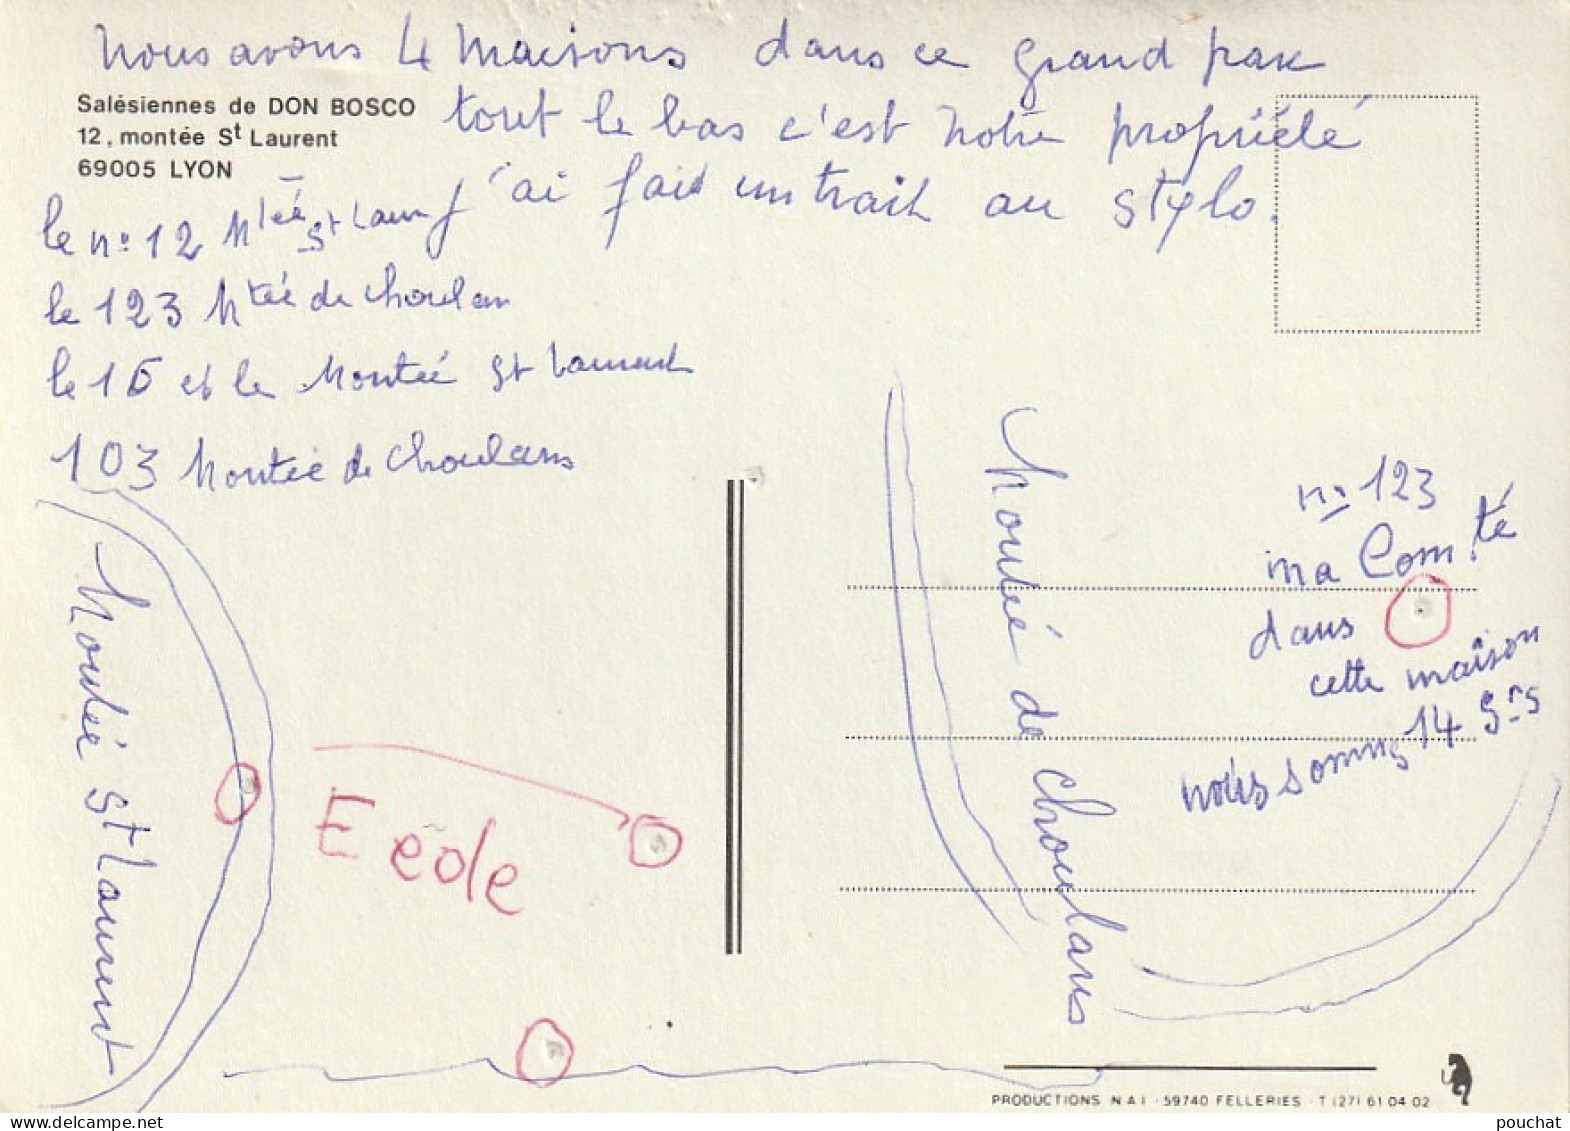 Nous avons 4 maisons dans ce grand parc
Salésiennes de DON BOSCO
12, montée St Laurent
69005 LYON
tout le bas c'est notre propriété
j'ai fait un trait au stylo.
le n° 12 Mtée St Laur
le 123 Mtée de Choulan
le 16 et le Montée St Laurent
103 Montée de Choulans
Montée St Laurent
Ecole
Montée de Choulans
n° 123
ma Com.té
dans
cette maison
nous sommes 14 Srs
PRODUCTIONS NAI - 59740 FELLERIES - T (27) 61 04 02
pouchat